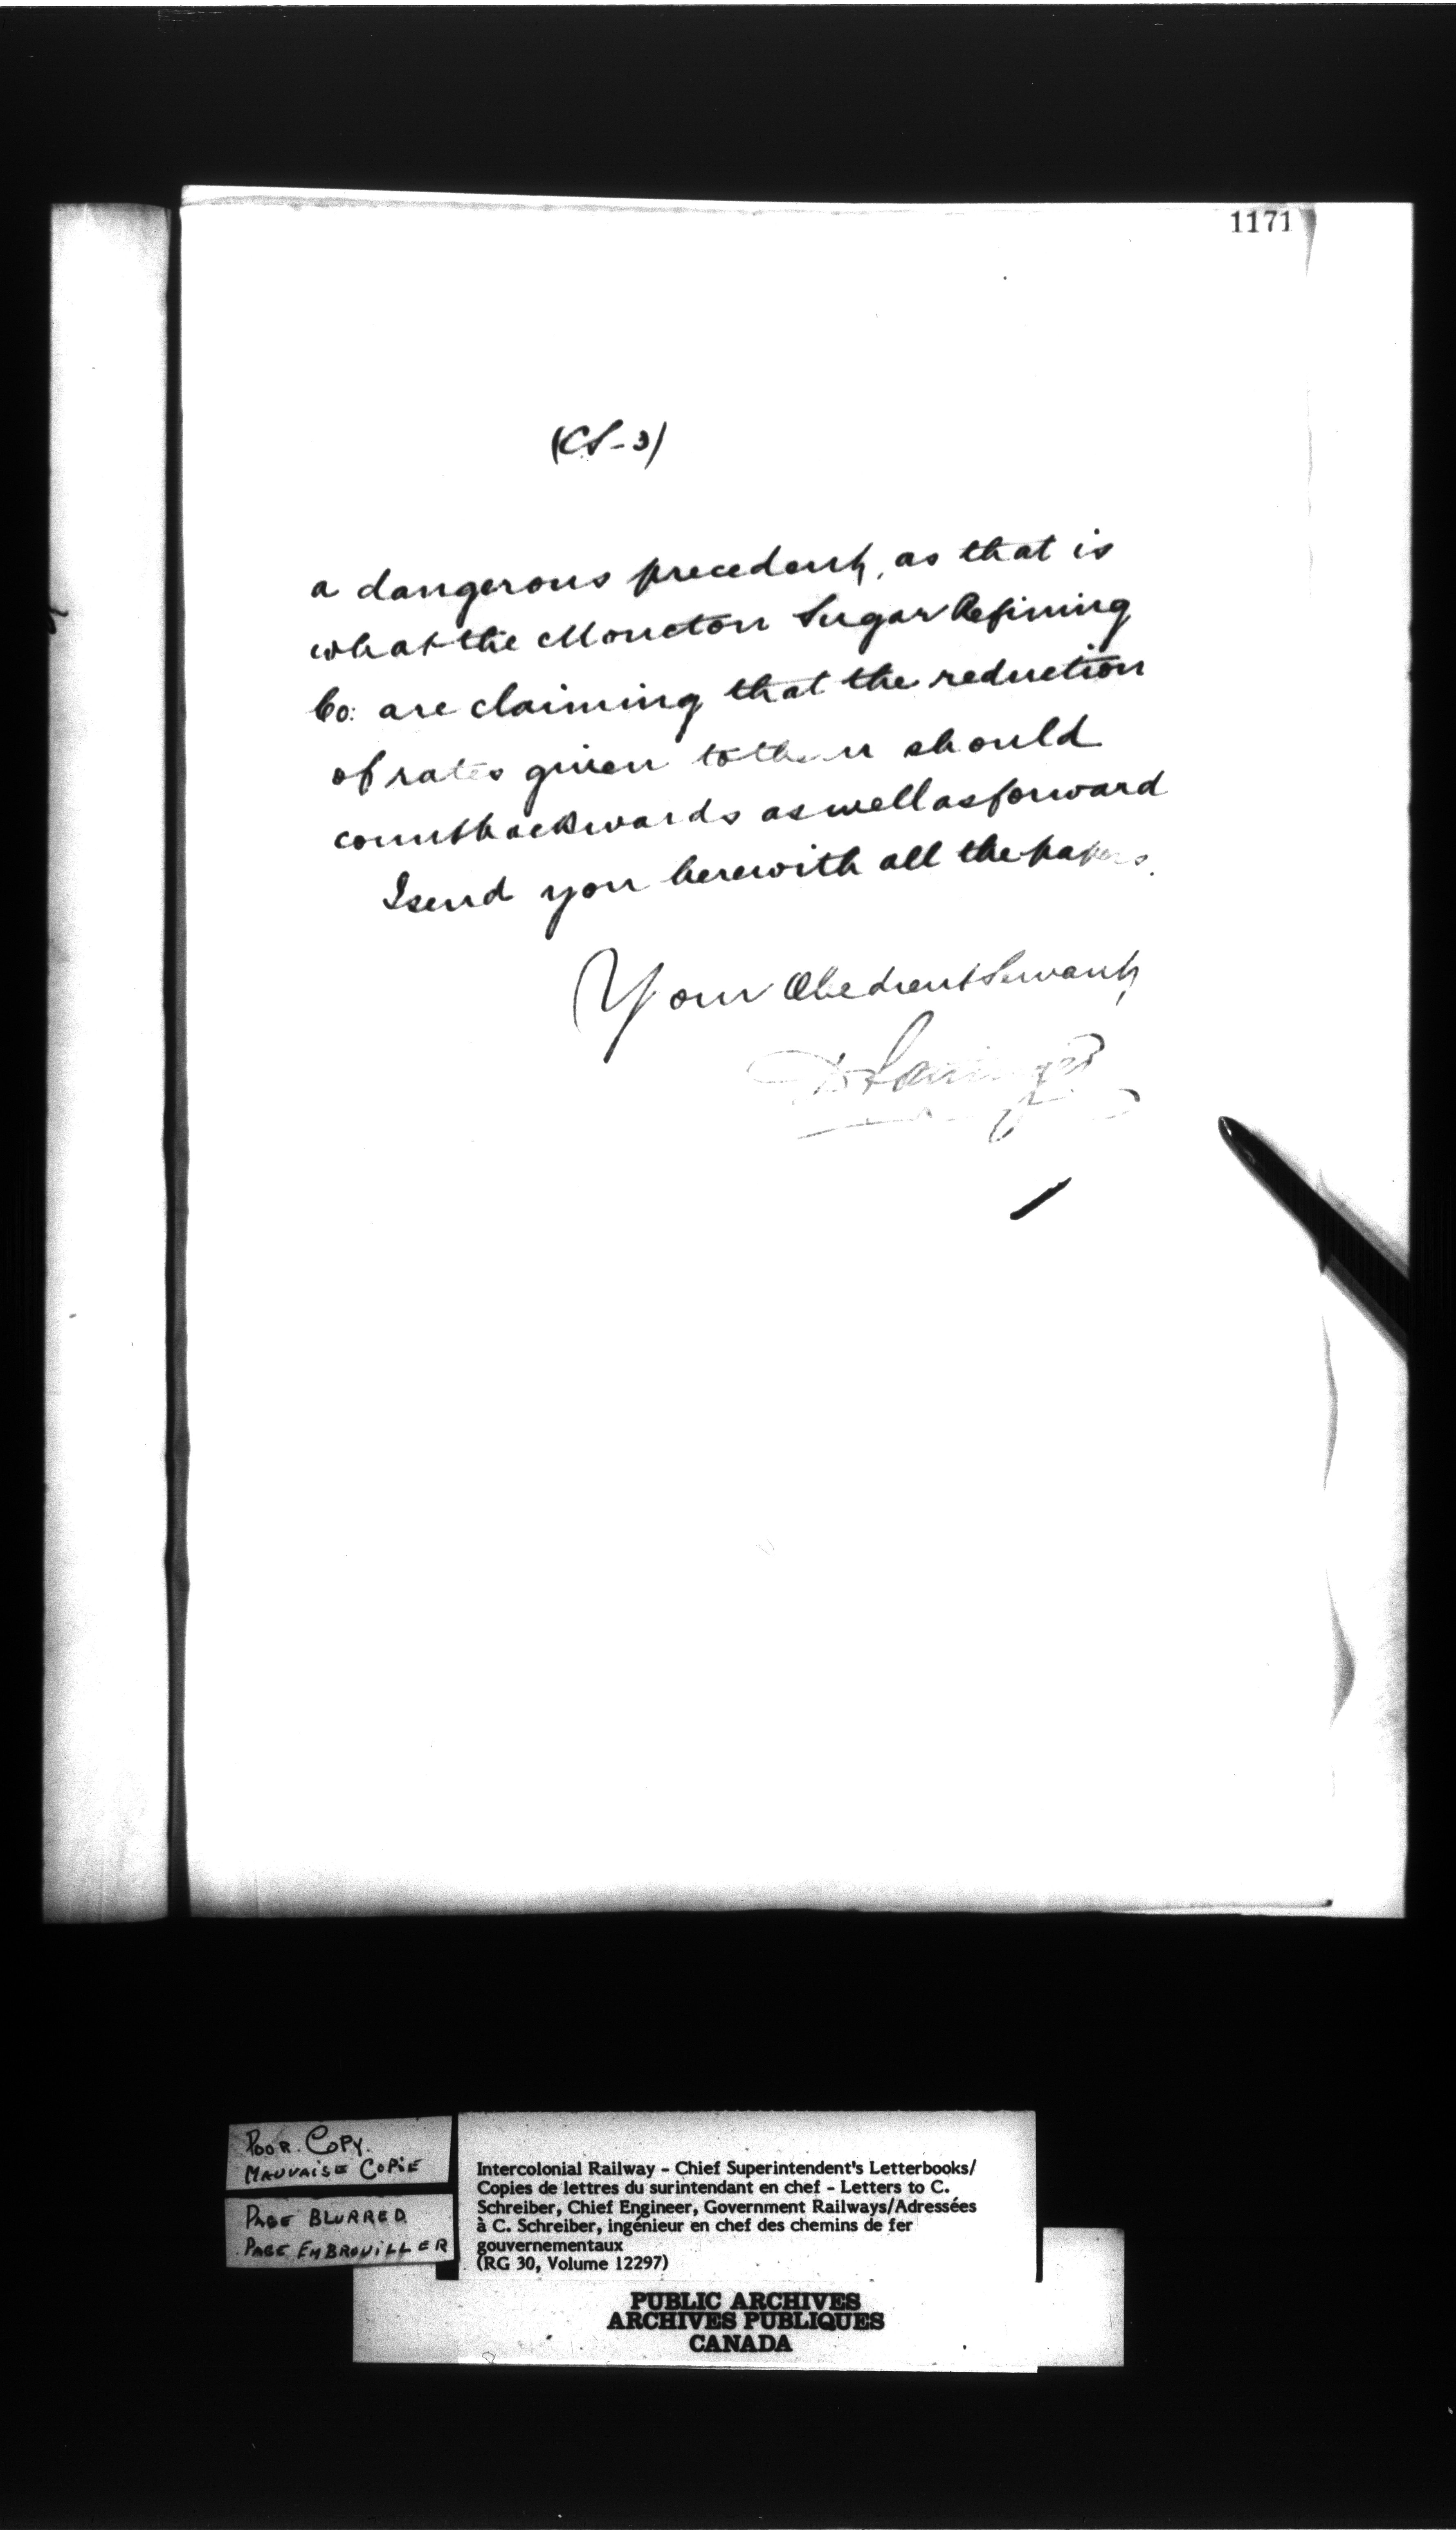 1171
(CS-3)
a dangerous precedent, as that is
what the Moncton Sugar Refining
Co: are claiming that the reduction
of rates given to them should
count backwards as well as forward
I send you herewith all the papers.
Your Obedient Servant,
POOR COPY.
MAUVAISE COPIE
PAGE BLURRED
PAGE EMBROUILLER
Intercolonial Railway - Chief Superintendent's Letterbooks/
Copies de lettres du surintendant en chef - Letters to C.
Schreiber, Chief Engineer, Government Railways/Adressées
à C. Schreiber, ingénieur en chef des chemins de fer
gouvernementaux
(RG 30, Volume 12297)
PUBLIC ARCHIVES
ARCHIVES PUBLIQUES
CANADA